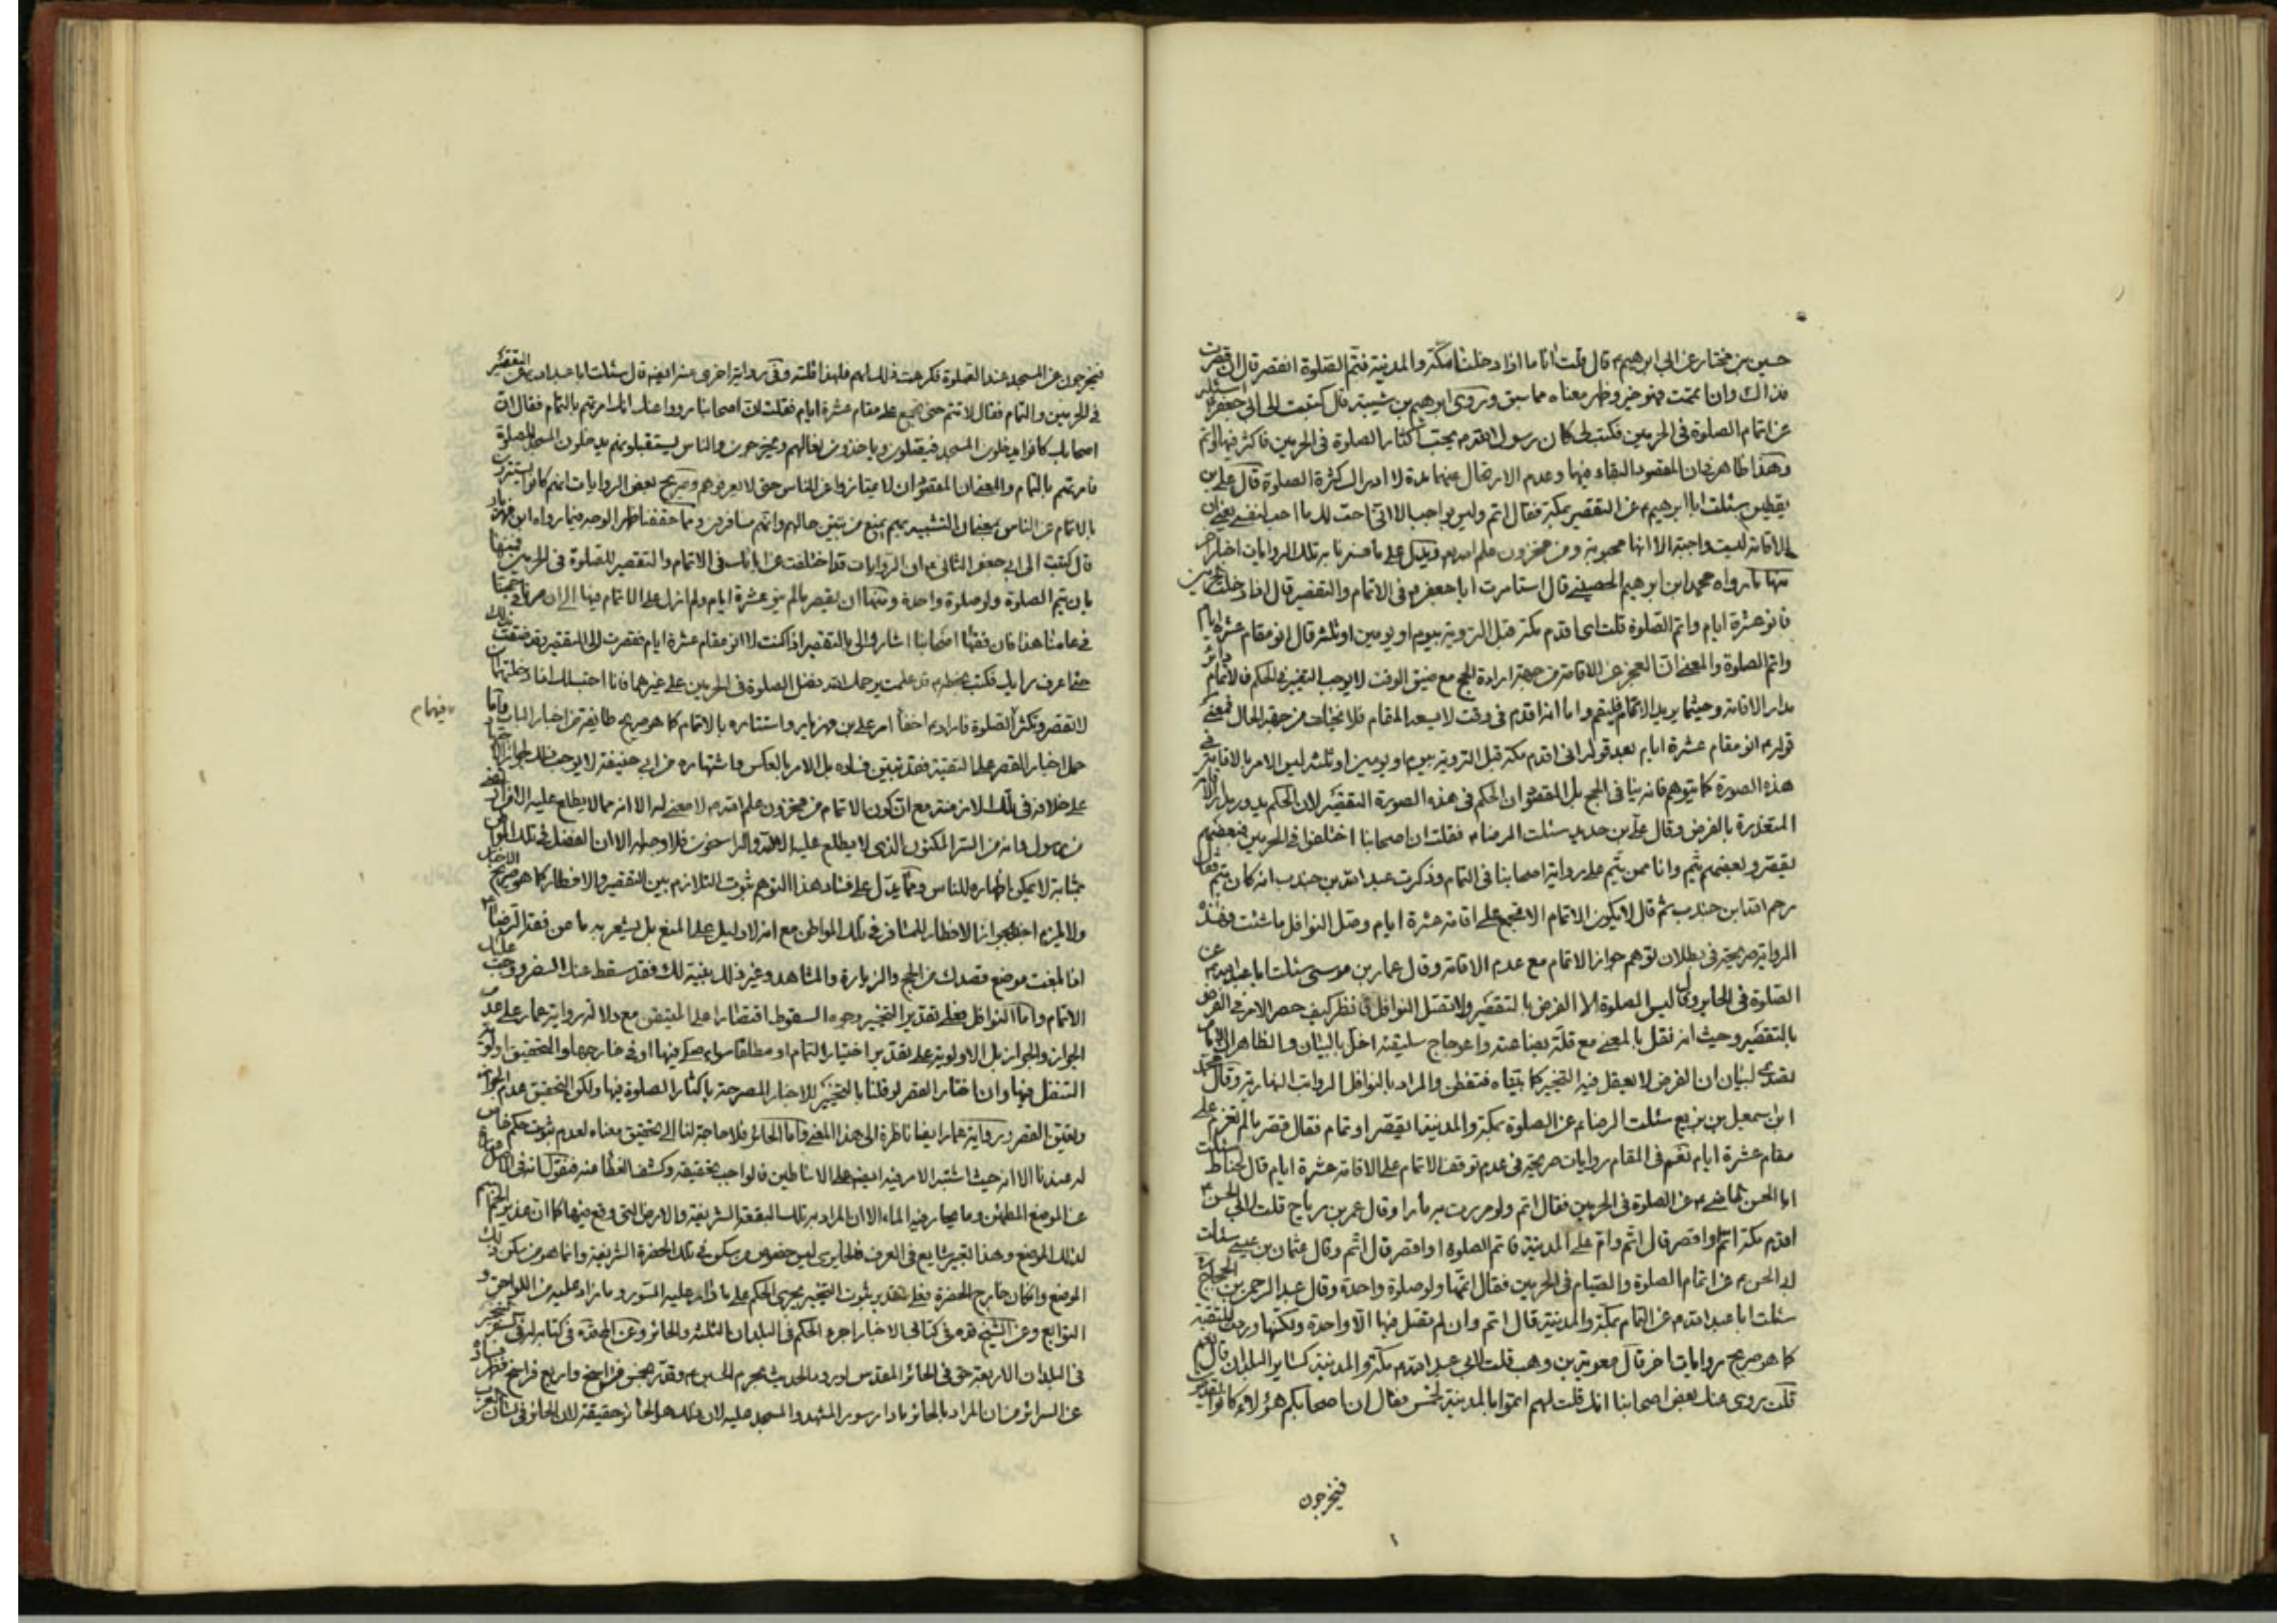 حسين بن مختار عن ابي ابرهيم ع قال قلت له انا اذا دخلنا مكة والمدينة فنتم الصلوة او نقصر قال ان قصرت
فذاك وان اتممت فهو خير وظهر معناه مما سبق وروى ابرهيم بن شيبة قال كتبت الى ابي جعفر ع اسئله
عن اتمام الصلوة في الحرمين فكتب الى كان رسول الله ص يحب اكثار الصلوة في الحرمين فاكثر فيهما واتم
وهذا ظاهر فان المقصود البقاء فيها وعدم الارتحال عنهما مدة لادراك كثرة الصلوة قال علي بن
يقطين سئلت ابا ابرهيم ع عن التقصير بمكة فقال اتم وليس بواجب الا اني احب لك ما احب لنفسي يعني ان
الاقامة ليست واجبة الا انها محبوبة ومن مخزون علم الله ويدل على ما فسرنا به تلك الروايات اخبار اخر
منها ما رواه محمد ابن ابرهيم الحصيني قال استامرت ابا جعفر ع في الاتمام والتقصير قال اذا دخلت الحرمين
فانو عشرة ايام واتم الصلوة قلت انى اقدم مكة قبل التروية بيوم او يومين او ثلثة قال انو مقام عشرة ايام
واتم الصلوة والمعنى ان العجز عن الاقامة من جهة ارادة الحج مع ضيق الوقت لا يوجب التخيير في الحكم فالاتمام دائر
مدار الاقامة وحيثما يريد الاتمام فليقم واما اذا قدم في وقت لا يسعه المقام فلا من جهة الحال فمعنى
قوله ع انو مقام عشرة ايام بعد قوله انى اقدم مكة قبل التروية بيوم او يومين او ثلثة ليس الامر بالاقامة في
هذه الصورة كما يتوهم فانه ينافي الحج بل المقصود ان الحكم في هذه الصورة التقصير لان الحكم يدور مدار الاقامة
المتعذرة بالفرض وقال علي بن حديد سئلت الرضا ع فقلت ان اصحابنا اختلفوا في الحرمين فبعضهم
يقصر وبعضهم يتم وانا ممن يتم على رواية اصحابنا في التمام وذكرت عبد الله بن جندب انه كان يتم فقال
رحم الله ابن جندب ثم قال لا يكون الاتمام الا ان تجمع على اقامة عشرة ايام وصل النوافل ما شئت وهذه
الرواية صريحة في بطلان توهم جواز الاتمام مع عدم الاقامة وقال عمار بن موسى سئلت ابا عبد الله ع عن
الصلوة في الحاير وقال ليس الصلوة الا الفرض بالتقصير ولا تصل النوافل فانظر كيف حصر الامر في الفرض
بالتقصير وحيث انه نقل بالمعنى مع قلة بضاعته واعوجاج سليقته اخل بالبيان والظاهر ان الامام
تصدى لبيان ان الفرض لا يعقل فيه التخيير كما بيناه فتفطن والمراد بالنوافل الرواتب النهارية وقال محمد
ابن اسمعيل بن بزيع سئلت الرضا ع عن الصلوة بمكة والمدينة تقصير او تمام فقال قصر ما لم تعزم على
مقام عشرة ايام نعم في المقام روايات صريحة في عدم توقف الاتمام على الاقامة عشرة ايام قال الحناط سئلت
ابا الحسن الماضي ع عن الصلوة في الحرمين فقال اتم ولو مررت به مارا وقال عمر بن رباح قلت لابي الحسن ع
اقدم مكة اتم او اقصر قال اتم وامر على المدينة فاتم الصلوة او اقصر قال اتم وقال عثمان بن عيسى سئلت
ابا الحسن ع عن اتمام الصلوة والصيام في الحرمين فقال اتمها ولو صلوة واحدة وقال عبد الرحمن بن الحجاج
سئلت ابا عبد الله ع عن التمام بمكة والمدينة قال اتم وان لم تصل فيها الا واحدة ولكنها وردت للتقية
كما هو صريح روايات اخر قال معوية بن وهب قلت لابي عبد الله ع مكة والمدينة كساير البلدان قال نعم
قلت روى عنك بعض اصحابنا انك قلت لهم اتموا بالمدينة لخمس فقال ان اصحابكم هؤلاء كانوا يقدمون
فيخرجون
فيخرجون عن المسجد عند الصلوة فكرهت ذلك لهم فلهذا قلته وفي رواية اخرى عنه ايضا قال سئلت ابا عبد الله ع عن التقصير
في الحرمين والتمام فقال لا تتم حتى تجمع على مقام عشرة ايام فقلت ان اصحابنا رووا عنك انك امرتهم بالتمام فقال ان
اصحابك كانوا يدخلون المسجد فيصلون وياخذون نعالهم ويخرجون والناس يستقبلونهم يدخلون المسجد للصلوة
فامرتهم بالتمام والمعنى ان المقصود ان لا يمتازوا عن الناس حتى لا يعرفوهم وصريح بعض الروايات انهم كانوا يستترون
بالاتمام عن الناس بمعنى ان التشبه بهم يمنع من تبين حالهم وانهم مسافرون ومما حققنا ظهر الوجه فيما رواه ابن مهزيار
قال كتبت الى ابي جعفر الثاني ع ان الروايات قد اختلفت عن ابائك في الاتمام والتقصير للصلوة في الحرمين فمنها
بان يتم الصلوة ولو صلوة واحدة ومنها ان يقصر ما لم ينو عشرة ايام ولم ازل على الاتمام فيها الى ان صدرنا في حجنا
في عامنا هذا فان فقهاء اصحابنا اشاروا الى بالتقصير اذا كنت لا انو مقام عشرة ايام فقصرت الى التقصير وقد ضقت بذلك
حتى اعرف رايك فكتب بخطه ع قد علمت يرحمك الله فضل الصلوة في الحرمين على غيرهما فانا احب لك اذا دخلتهما ان
لا تقصر وتكثر الصلوة فاراد ع اخفاء امر علي بن مهزيار واستتاره بالاتمام كما هو صريح طايفة من اخبار الباب واما
فيهما م
حمل اخبار القصر على التقية فقد تبين فساده بل الامر بالعكس واشتهاره من ابي حنيفة لا يوجب ذلك
على خلافه في تلك الازمنة مع ان كون الاتمام من مخزون علم الله لا معنى له الا انه مما لا يطلع عليه الا
من رسول وانه من السر المكنون الذى لا يطلع عليه الا الله والراسخون فلا وجه له الا ان الفضل في تلك المواضع
بمثابة لا يمكن اظهاره للناس ومما يدل على فساد هذا التوهم ثبوت التلازم بين التقصير والافطار كما هو صريح الاخبار
ولا يلزم احد بجواز الافطار للمسافر في تلك المواطن مع انه لا دليل على المنع بل يشعر به ما عن فقه الرضا ع
اذا بلغت موضع قصدك من الحج والزيارة والمشاهد وغير ذلك بنية لك فقد سقط عنك السفر ووجب عليك
الاتمام واما النوافل فعلى تقدير التخيير وجوه السقوط اقتصارا على المتيقن مع دلالة رواية عمار على عدم
الجواز والجواز بل الاولوية على تقدير اختيار التمام او مطلقا سواء صلى فيها او في خارجها والتحقيق اولوية
التنفل فيها وان اختار القصر لو قلنا بالتخيير للاخبار المصرحة باكثار الصلوة فيها ولكن التحقيق عدم الجواز
وتعين القصر ورواية عمار ايضا ناظرة الى هذا المعنى واما الحائر فلا حاجة لنا الى تحقيق معناه لعدم ثبوت حكم خاص
له عندنا الا انه حيث اشتبه الامر فيه ايضا على الاساطين فالواجب تحقيقه وكشف الغطاء عنه فنقول انه في الاصل
عن الموضع المطمئن وما يحار فيه الماء الا ان المراد به تلك البقعة الشريفة والارض التي وقع فيها كما ان غدير خم اسم
لذلك الموضع وهذا تعبير شايع في العرف فالحايرى ليس خصوص من يسكن في تلك الحضرة الشريفة وانما هو من سكن ذلك
الموضع وان كان خارج الحضرة فعلى تقدير ثبوت التخيير يجرى الحكم على ما دار عليه السور وما زاد عليه من اللواحق و
التوابع وعن الشيخ قده في كتابي الاخبار اجراء الحكم في البلدان الثلثة والحائر وعن المحقق في كتاب له في السفر التخيير
في البلدان الاربعة حتى في الحائر المقدس لورود الحديث بحرم الحسين ع وقدر بخمس فراسخ واربع فراسخ
عن السرائر من ان المراد بالحائر ما دار سور المشهد والمسجد عليه لان ذلك هو الحائر حقيقة لان الحائر في لسان العرب